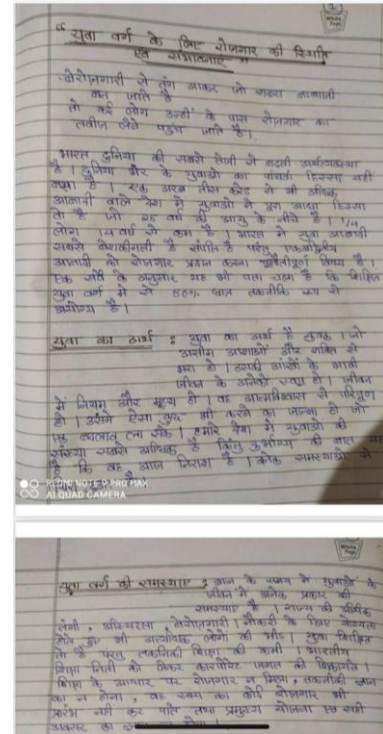 " युवा वर्ग के लिए रोजगार की स्थिति
एवं संभावनाएं "
बेरोजगारी से तंग आकर जो
बन जाते है
तो कई लोग उन्हीं के पास रोजगार का
तावीज लेने पहुंच जाते है।
भारत दुनिया की सबसे तेजी से बढ़ती अर्थव्यवस्था
है। दुनिया भर के युवाओं का पांचवां हिस्सा यही
है। एक अरब तीस करोड़ से भी अधिक
आबादी वाले देश में युवाओं में हिस्सा
जो 25 वर्ष की आयु के नीचे है। 1/4
लोग 14 वर्ष से कम है। भारत में युवा आबादी
सबसे है परंतु
आबादी को रोजगार प्रदान करना चुनौतीपूर्ण विषय है।
एक सर्वे के अनुसार यह भी पता चला है कि शिक्षित
युवा वर्ग में से 80% छात्र तकनीकि रूप से
अयोग्य है।
युवा का अर्थ : युवा का अर्थ है जो
असीम आशाओं और शक्ति से
भरा हो। उसकी आंखों के
जीवन के अनेकों स्वप्न हो। जीवन
में नियम और मूल्य हो। वह आत्मविश्वास से परिपूर्ण
हो। उसमें ऐसा कुछ भी करने का जज्बा हो जो
एक बदलाव ला सके। हमारे देश में युवाओं की
संख्या सबसे अधिक है किंतु दुर्भाग्य की बात यह
है कि वह आज निराश है। अनेक समस्याओं से
REDMI NOTE 9 PRO MAX
AI QUAD CAMERA
युवा वर्ग की समस्याएं : आज के समय में युवाओं के
जीवन में अनेक प्रकार की
समस्याएं है। राज्य की आर्थिक
तंगी, अस्थिरता, बेरोजगारी। नौकरी के लिए योग्यता
होते हुए भी अत्यधिक लोगों की भीड़। युवा शिक्षित
तो है परंतु तकनिकी शिक्षा की कमी। भारतीय
शिक्षा निती को लेकर कारपोरेट जगत की
शिक्षा के आधार पर रोजगार न मिलना, तकनीकी ज्ञान
का न होना, वह स्वयं का कोई रोजगार भी
प्रारंभ नहीं कर पाते तथा योजना एवं सही
अवसर का